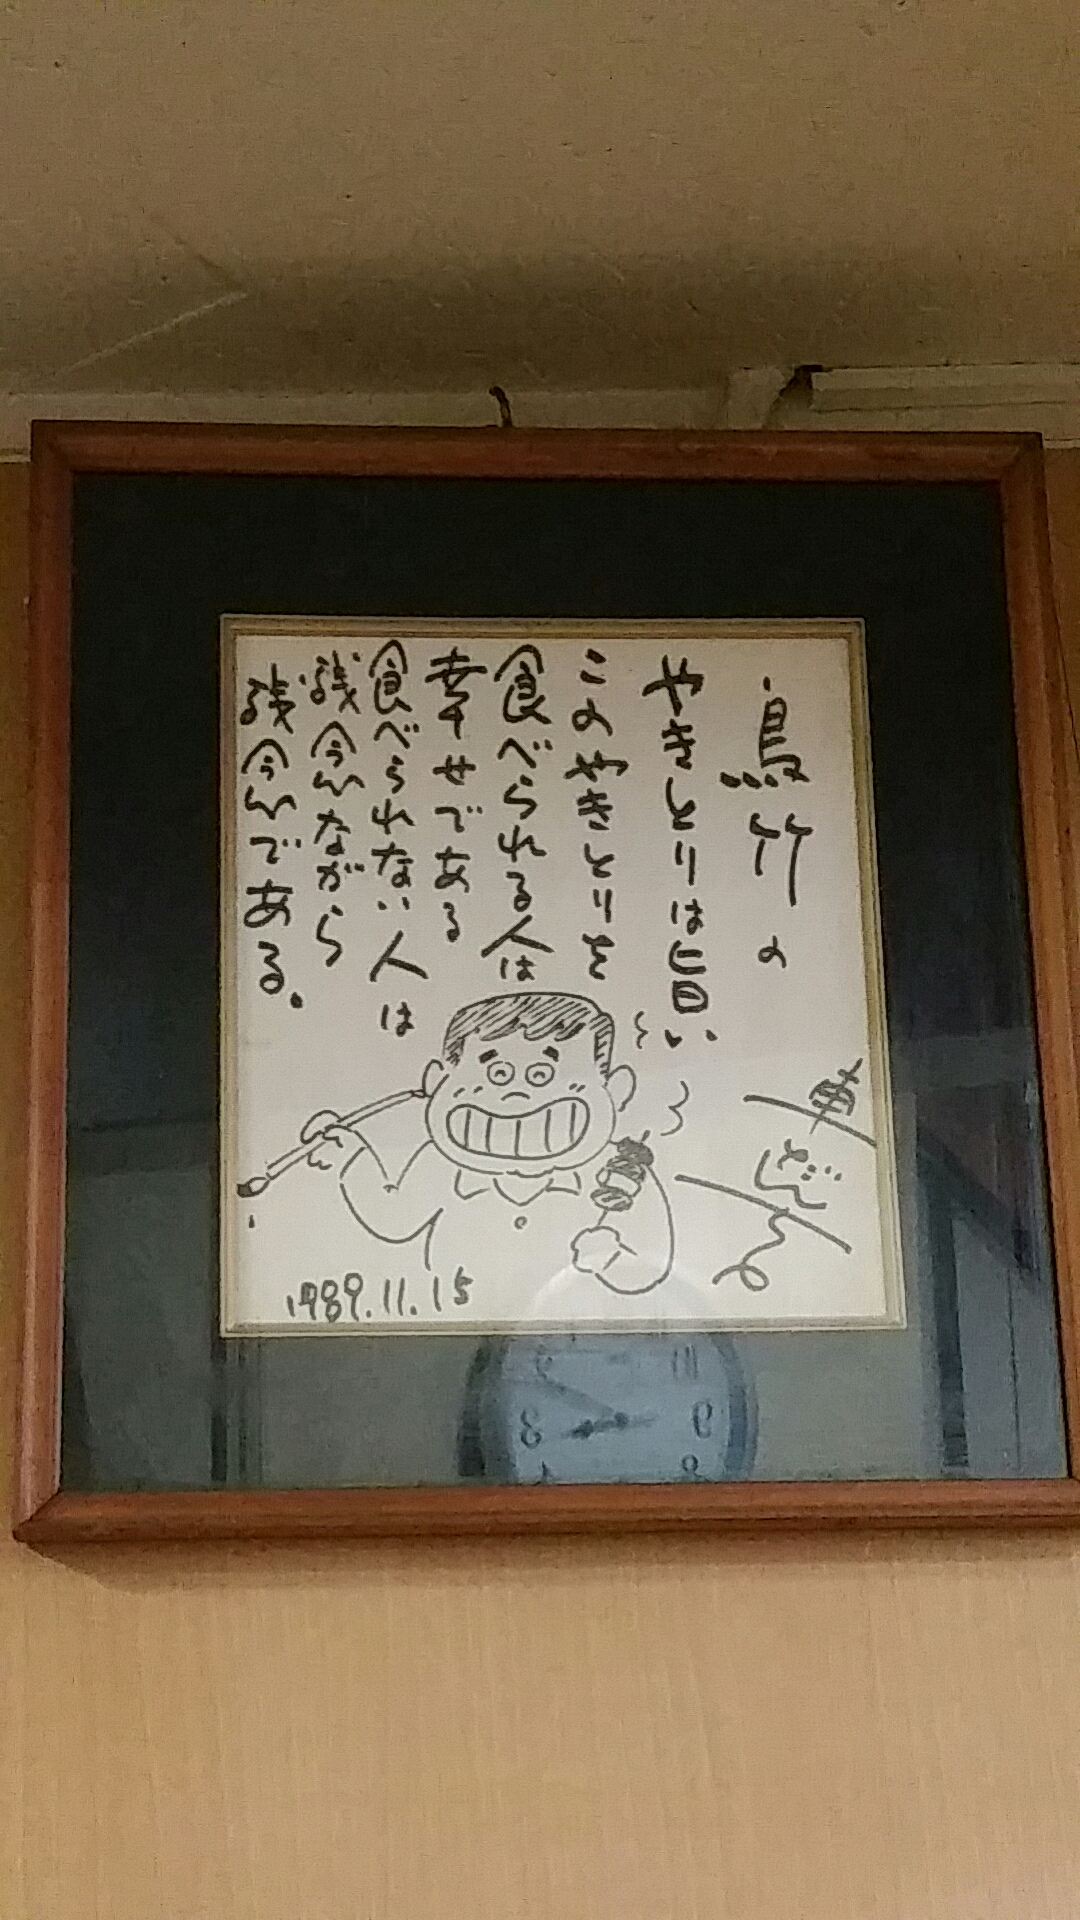 鳥竹の
やきとりは旨い
このやきとりを
食べられる人は
幸せである
食べられない人は
残念ながら
残念である。
車だん吉
1989.11.15